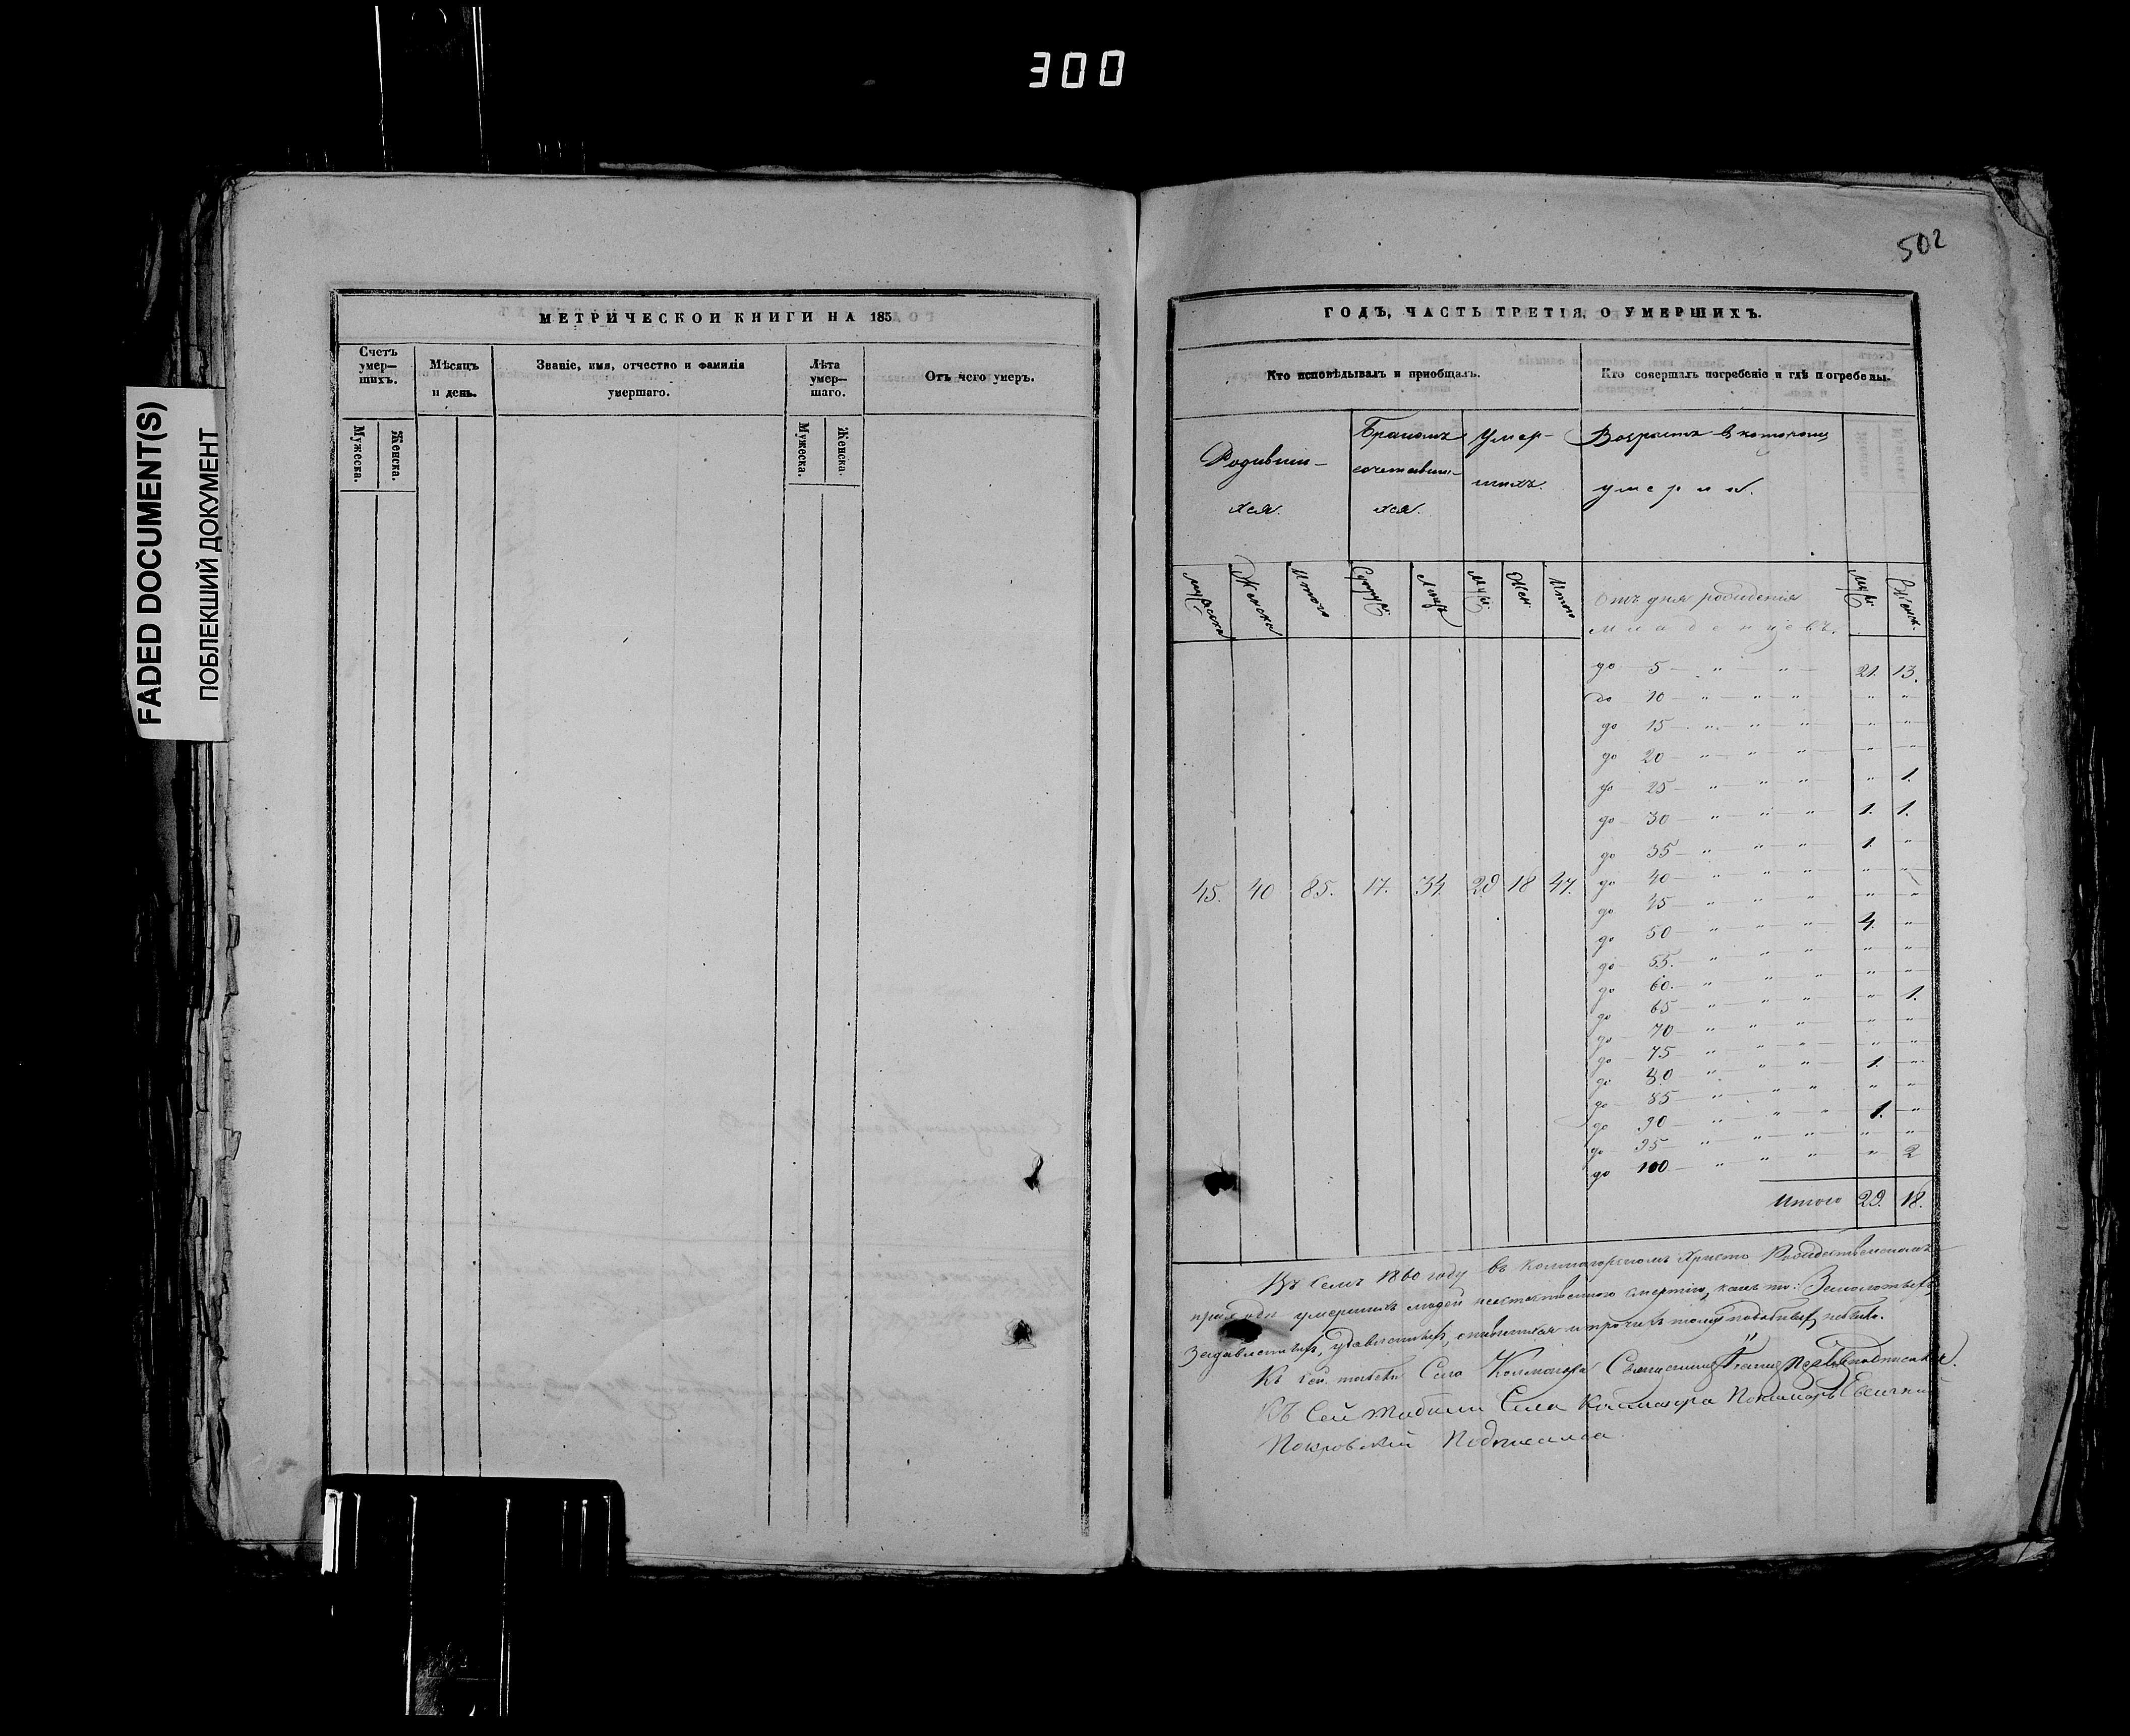 300
FADED DOCUMENT(S)
ПОБЛЕКШИЙ ДОКУМЕНТ
МЕТРИЧЕСКОИ КНИГИ НА 185
Счетъ умер—шихъ.
Мѣсяцъ и день.
Званіе, имя, отчество и фамиліа умершаго.
Лѣта умер—шаго.
Отъ чего умеръ.
Мужеска.
Женска.
Мужеска.
Женска.
502
ГОДЪ, ЧАСТЬ ТРЕТІЯ, О УМЕРШИХЪ.
Кто исповѣдывалъ и пріобщалъ.
Кто совершалъ погребеніе и гдѣ погребены.
Родивши-
хся.
Бракомъ
сочетавши-
хся.
Умер-
шихъ.
Возрастъ в которомъ
умерли.
мужеска
Женска
Итого
Супруж.
Лицъ
Муж.
Жен.
Итого
Отъ дня рожденія
младенцевъ.
муж.
Женск.
до 5 — " — " — 21. 13.
до 10 — " — " — " — " "
до 15 — " — " — " — " "
до 20 — " — " — " — " "
до 25 — " — " — " — " 1.
до 30 — " — " — " — 1. 1.
до 35 — " — " — " — 1. "
45. 40 85. 17. 34. 29 18 47.
до 40 — " — " — " — " "
до 45 — " — " — " — " "
до 50 — " — " — " — 4. "
до 55. — " — " — " — " "
до 60. — " — " — " — " "
до 65 — " — " — " — " 1.
до 70 — " — " — " — " "
до 75 — " — " — " — " "
до 80 — " — " — " — 1. "
до 85 — " — " — " — " "
до 90 — " — " — " — 1. "
до 95 — " — " — " — " "
до 100 — " — " — " — " 2
Итого 29. 18.
Въ семъ 1860 году въ Христо Рождественскомъ
приходѣ умершихъ людей неестественною смертію, какъ то:
и прочихъ тому подобныхъ небыло.
Къ сей табели Села Священникъ подписался.
Къ Сей табели Села Пономарь
Покровскій Подписался